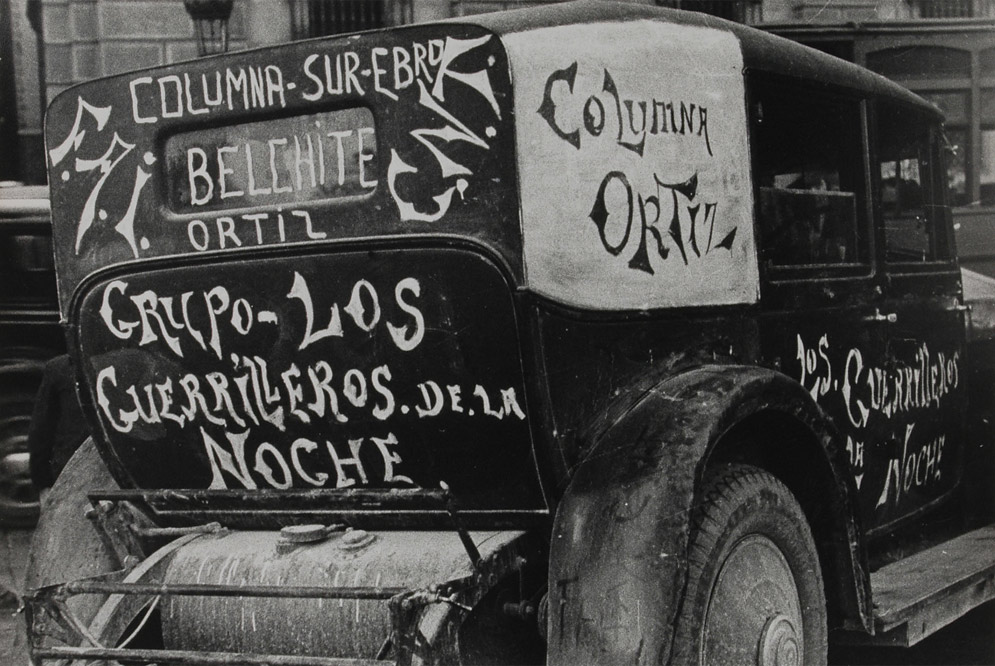 COLUMNA-SUR-EBRO
F.A.I.
C.N.T.
BELCHITE
ORTIZ
GRUPO-LOS
GUERRILLEROS.DE.LA
NOCHE
COLUMNA
ORTIZ
LOS.GUERRILLEROS
LA
NOCHE